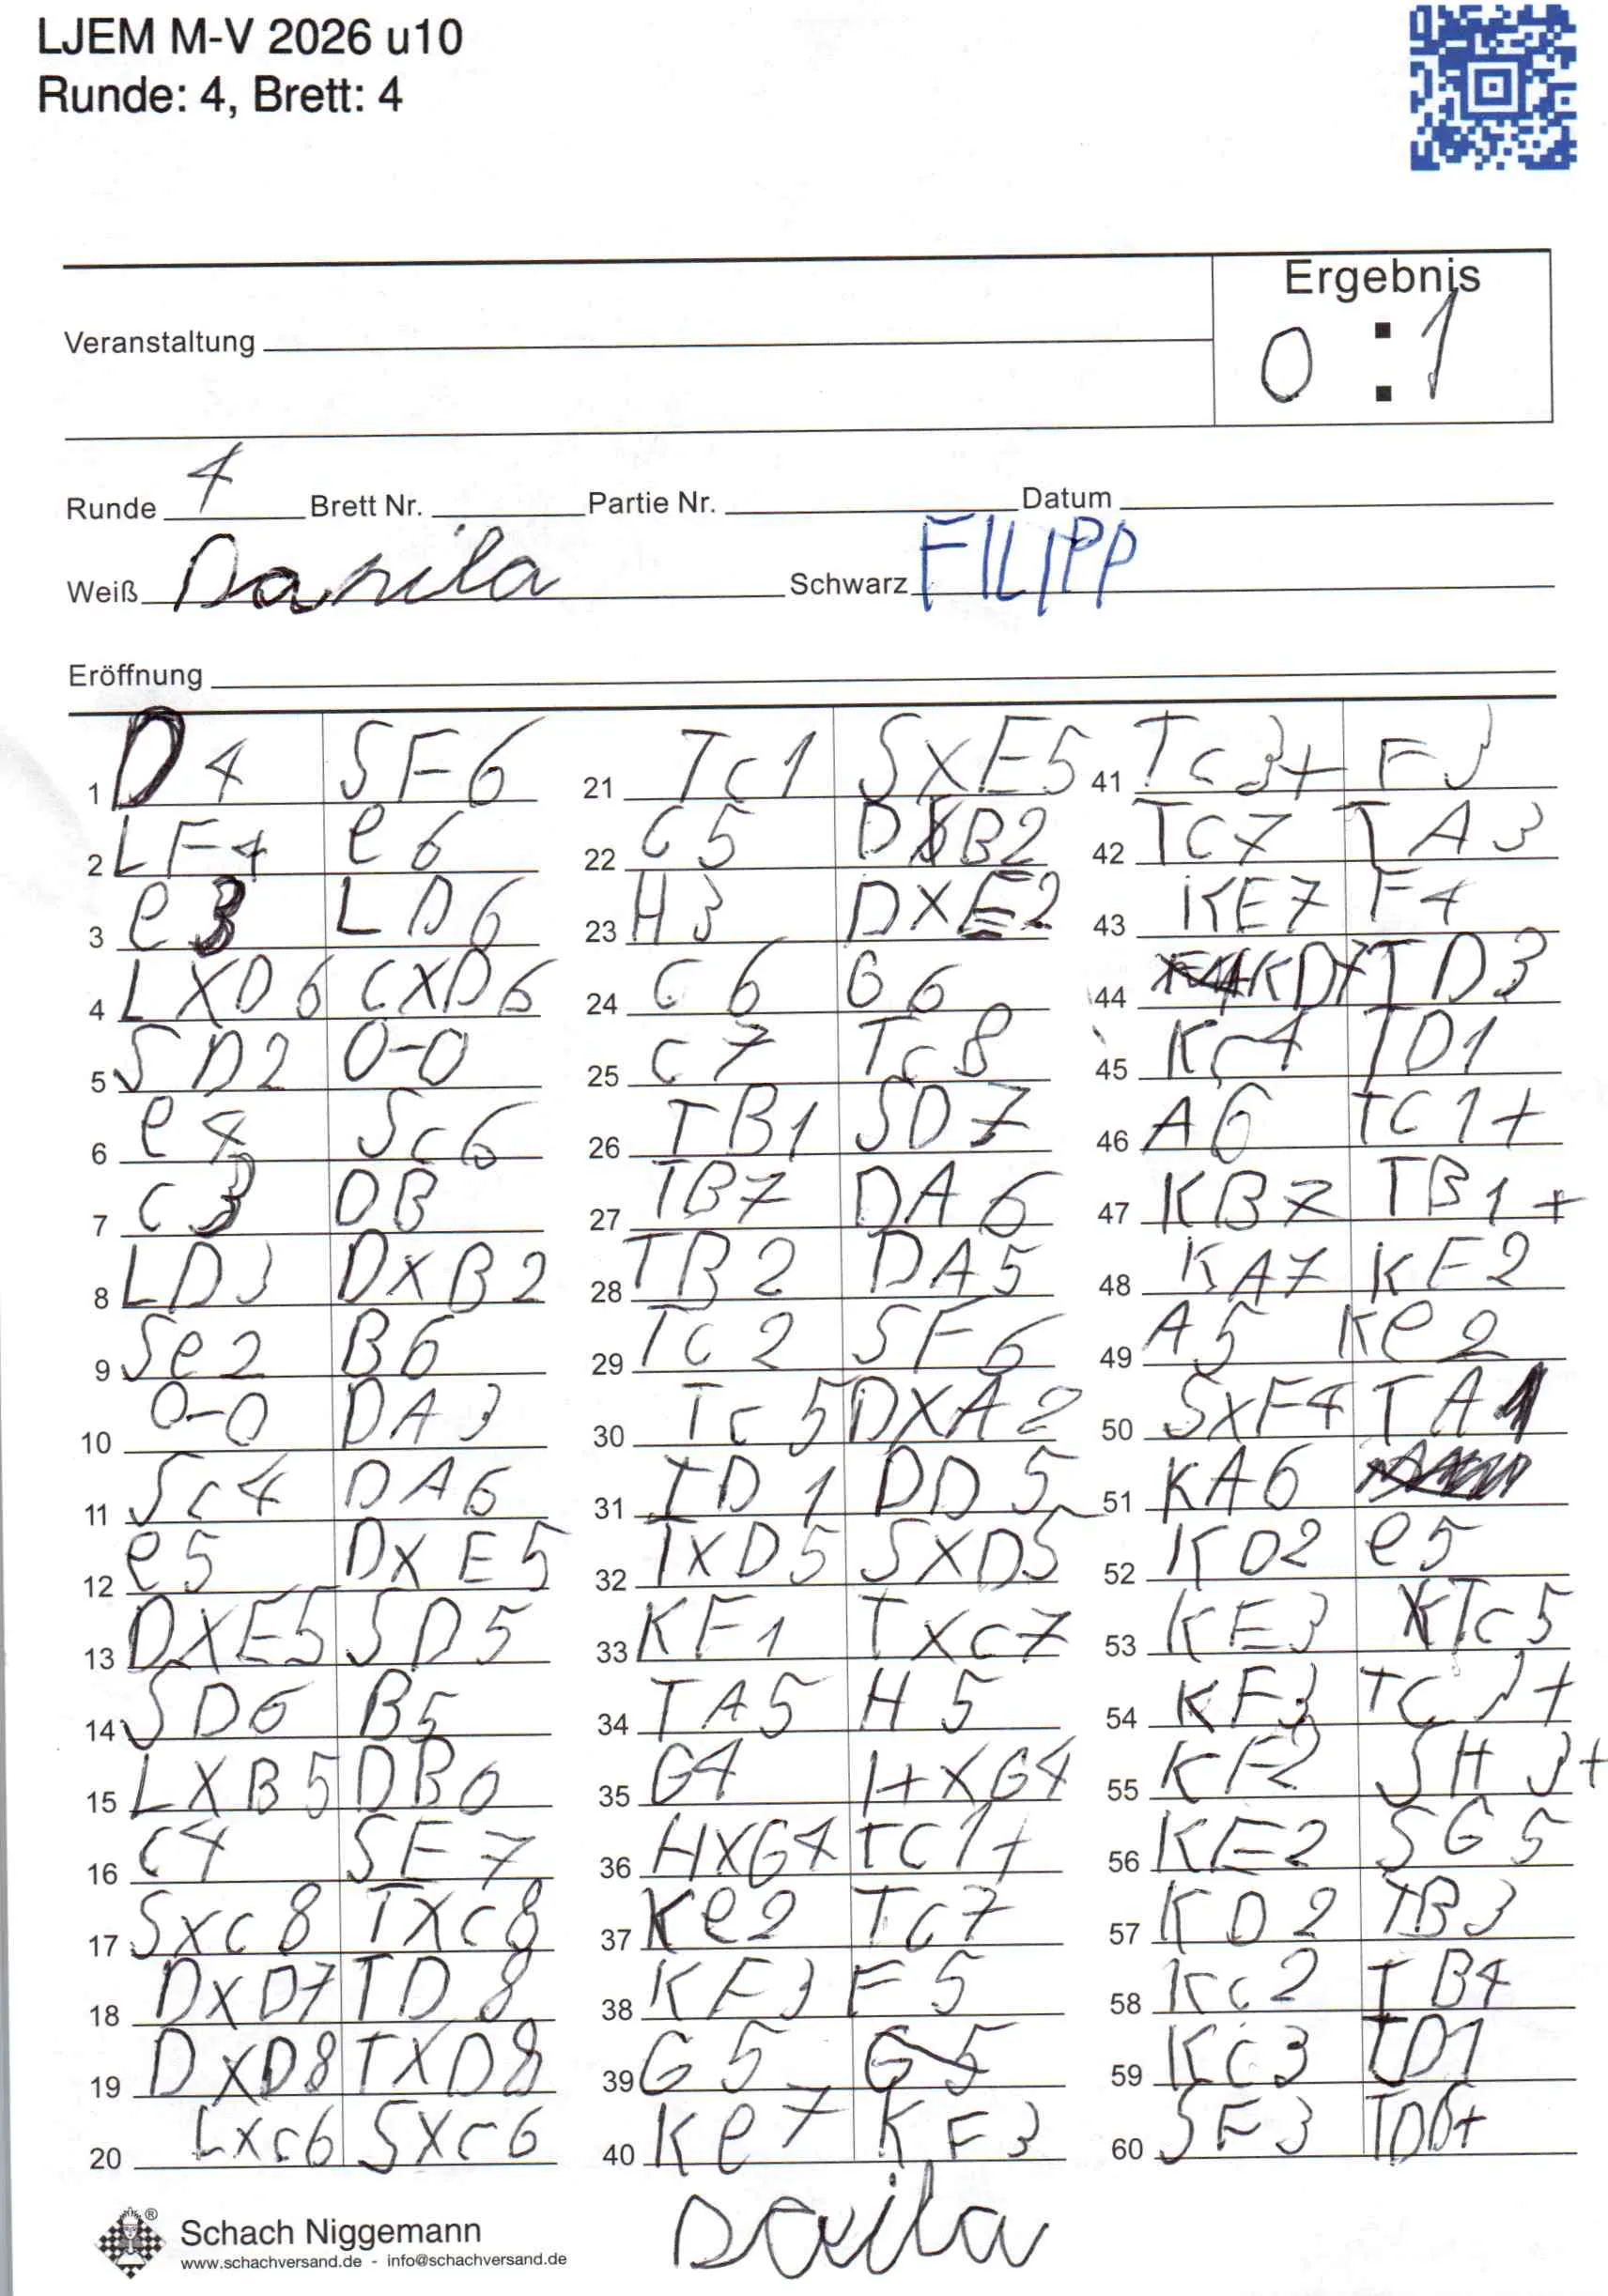 LJEM M-V 2026 u10
Runde: 4, Brett: 4
Ergebnis
Veranstaltung
0 : 1
Runde 4 Brett Nr. Partie Nr. Datum
Weiß Danila Schwarz FILIPP
Eröffnung
1 D4 SF6
2 LF4 e6
3 e3 LD6
4 LXD6 CXD6
5 SD2 0-0
6 e4 Sc6
7 c3 DB
8 LD3 DXB2
9 Se2 B6
10 0-0 DA3
11 Sc4 DA6
12 e5 DXE5
13 DXE5 SD5
14 SD6 B5
15 LXB5 DB6
16 C4 SE7
17 Sxc8 TXc8
18 DXD7 TD8
19 DXD8 TXD8
20 Lxc6 SXc6
21 Tc1 SXE5
22 C5 DXB2
23 H3 DXE2
24 C6 G6
25 C7 Tc8
26 TB1 SD7
27 TB7 DA6
28 TB2 DA5
29 Tc2 SF6
30 Tc5 DXA2
31 TD1 DD5
32 TXD5 SXD5
33 KF1 TXc7
34 TA5 H5
35 G4 HXG4
36 HXG4 TC1+
37 Ke2 Tc7
38 KF3 F5
39 G5 G5
40 Ke7 KF3
41 Tc3+ F3
42 TC7 TA3
43 KE7 F4
44 KD7 TD3
45 Kc4 TD1
46 A6 TC1+
47 KB7 TB1+
48 KA7 KF2
49 A5 Ke2
50 SXF4 TA1
51 KA6
52 KD2 e5
53 KE3 KTc5
54 KF3 TC3+
55 KF2 SH3+
56 KE2 SG5
57 KD2 TB3
58 Kc2 TB4
59 KC3 TD1
60 SF3 TD6+
Schach Niggemann
www.schachversand.de - info@schachversand.de
Danila